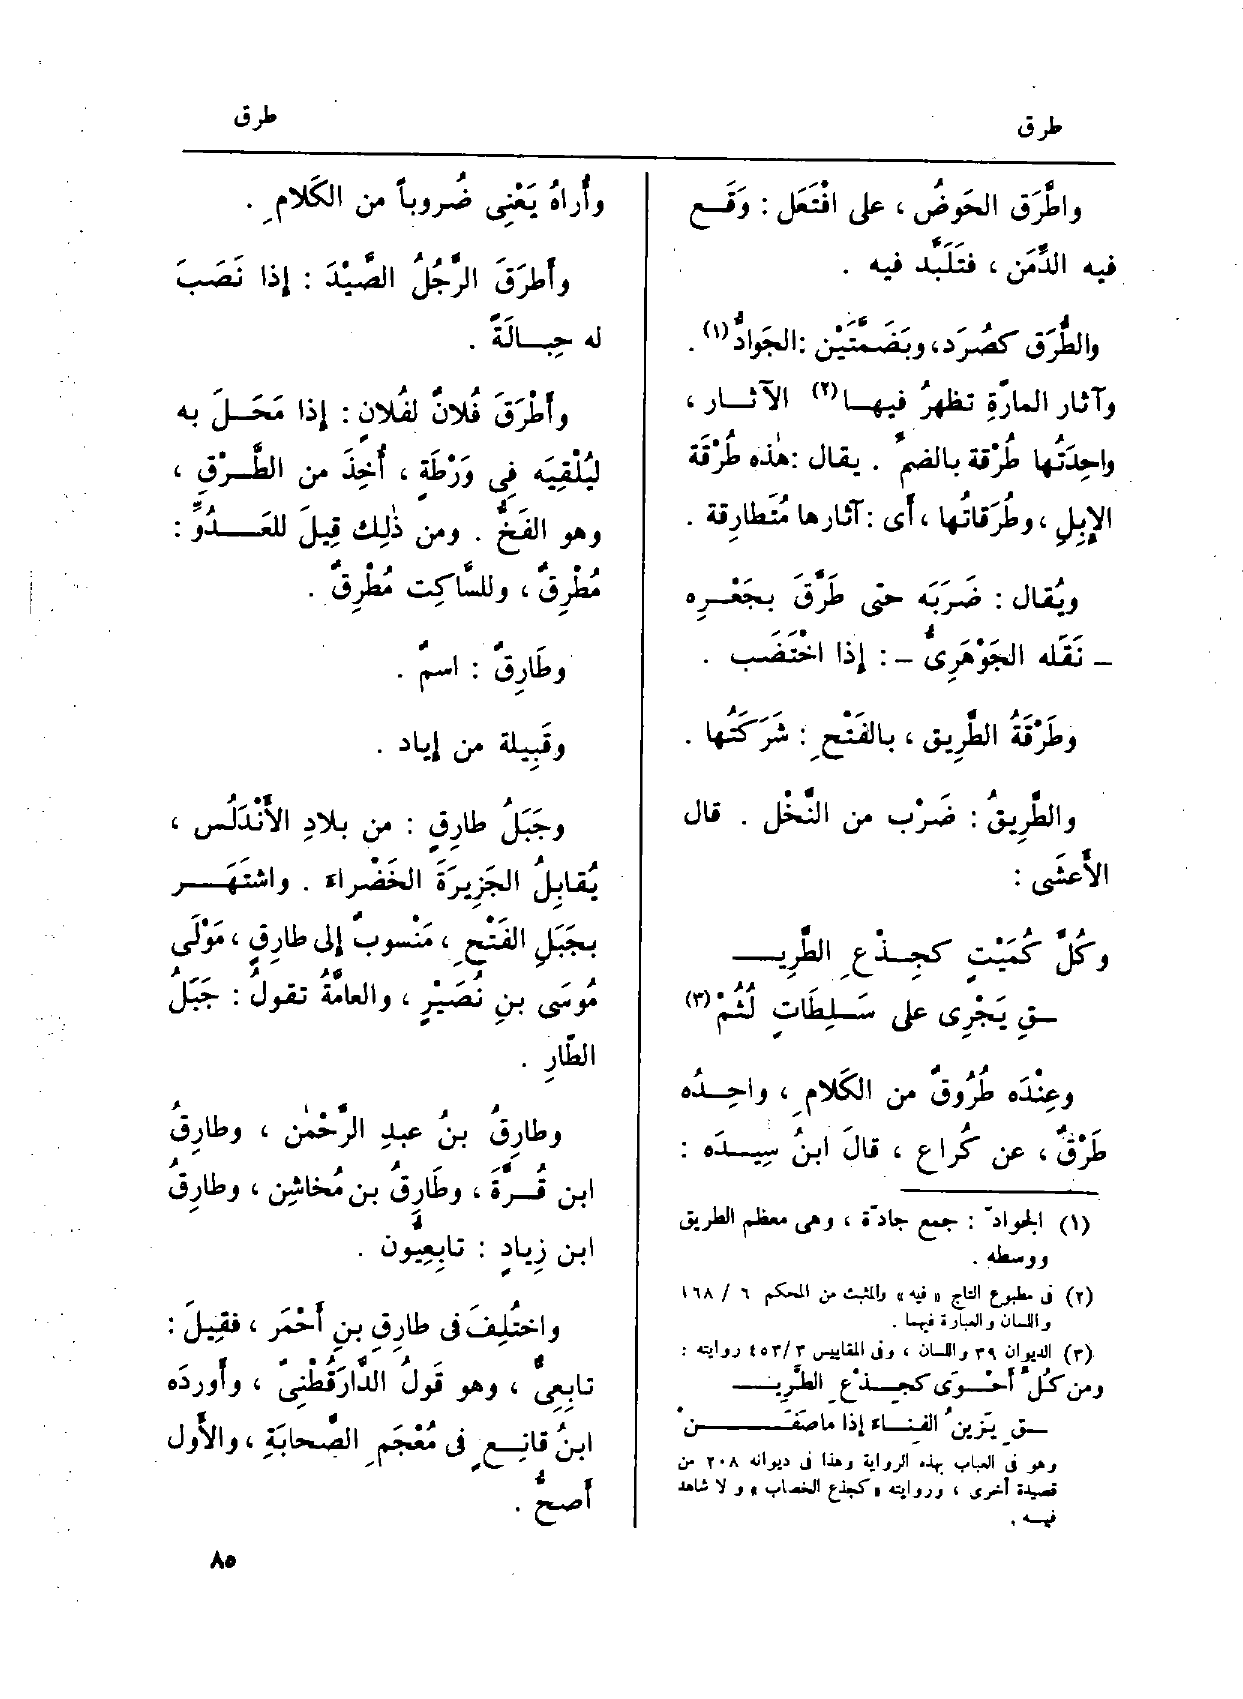 طرق
طرق
واطَّرَق الحَوضُ ، على افْتَعَل : وَقَـع
فيه الدِّمَن ، فَتَلَبَّد فيه .
والطُّرَق كصُرَد، وبَضَمَّتَيْن :الجَوادُّ(١) .
وآثار المارّةِ تظهرُ فيهـا(٢) الآثـار ،
واحِدَتُها طُرْقة بالضمّ . يقال :هٰذه طُرْقَة
الإِبِلِ ، وطُرَقاتُها ، أَى :آثارها مُتَطارِقة .
ويُقال : ضَرَبَه حتى طَرَّقَ بجَعْـرِه
– نَقَله الجَوْهَرِىُّ – : إِذا اخْتَضَب .
وطَرْقَةُ الطَّرِيق ، بالفَتْحِ : شَرَكَتُها .
والطَّرِيقُ : ضَرْب من النَّخْل . قال
الأَعشَى :
وكُلِّ كُمَيْتٍ كجِـذْعِ الطَّرِيـ
ـقِ يَجْرِى على سَـلِطَاتٍ لُثُمْ(٣)
وعِنْدَه طُرُوقٌ من الكَلامِ ، واحِـدُه
طَرْقٌ ، عن كُراع ، قالَ ابنُ سِيـدَه :
(١) الجوادّ : جمع جادّة ، وهى معظم الطريق
ووسطه .
(٢) فى مطبوع التاج « فيه » والمثبت من المحكم ٦ / ١٦٨
واللسان والعبارة فيهما .
(٣) الديوان ٣٩ واللسان ، وفى المقاييس ٤٥٣/٣ روايته :
ومن كُلّ أَحْـوَى كجِـذْعِ الطَّرِيـ
ـقِ يَزِينُ الفِنـاءَ إذا ماصَفَـنْ
وهو فى العباب بهذه الرواية وهذا فى ديوانه ٢٠٨ من
قصيدة أخرى ، وروايته « كجذع الخصاب » ولا شاهد
فيـه .
وأُراهُ يَعْنِى ضُروباً من الكَلامِ .
وأَطرَقَ الرَّجُلُ الصَّيْدَ : إِذا نَصَبَ
له حِبـالَةً .
وأَطْرَقَ فُلانٌ لفُلانٍ : إِذا مَحَـلَ به
لِيُلْقِيَه فِى وَرْطَةٍ ، أُخِذَ من الطَّـرْقِ ،
وهو الفَخُّ . ومن ذٰلِك قِيلَ للعَـدُوِّ :
مُطْرِقٌ ، وللسَّاكِت مُطْرِقٌ .
وطَارِقٌ : اسمٌ .
وقَبِيلة من إِياد .
وجَبَلُ طارِقٍ : من بلادِ الأَنْدَلُس ،
يُقابِلُ الجَزِيرَةَ الخَضْراء . واشتَهَـر
بجَبَلِ الفَتْحِ ، مَنْسوبٌ إِلى طارِقٍ ، مَوْلَى
مُوسَى بنِ نُصَيْرٍ ، والعامَّةُ تقولُ : جَبَلُ
الطَّارِ .
وطارِقُ بنُ عبدِ الرَّحْمٰن ، وطارِقُ
ابن قُـرَّةَ ، وطَارِقُ بن مُخاشِن ، وطارِقُ
ابن زِيادٍ : تابِعِيُّون .
واختُلِفَ فى طارِقِ بنِ أَحْمَر ، فقِيلَ :
تابِعِىٌّ ، وهو قَولُ الدَّارَقُطْنِىّ ، وأَوردَه
ابنُ قانِـعٍ فى مُعْجَمِ الصَّحابَةِ ، والأَول
أَصحُّ .
٨٥